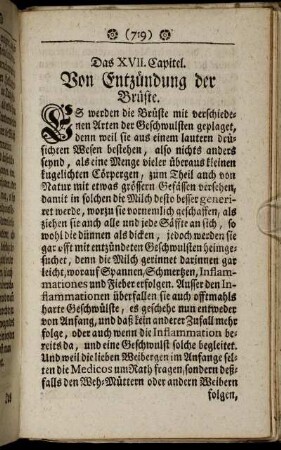 (719)
Das XVII. Capitel.
Von Entzündung der
Brüste.
ES werden die Brüste mit verschiede-
nen Arten der Geschwulsten geplaget,
denn weil sie aus einem lautern drü-
sichten Wesen bestehen, also nichts anders
seynd, als eine Menge vieler überaus kleinen
kugelichten Cörpergen, zum Theil auch von
Natur mit etwas grössern Gefässen versehen,
damit in solchen die Milch desto besser generi-
ret werde, worzu sie vornemlich geschaffen, als
ziehen sie auch alle und jede Säffte an sich, so
wohl die dünnen als dicken, jedoch werden sie
gar offt mit entzündeten Geschwulsten heimge-
suchet, denn die Milch gerinnet darinnen gar
leicht, worauf Spannen, Schmertzen, Inflam-
mationes und Fieber erfolgen. Ausser den In-
flammationen überfallen sie auch offtmahls
harte Geschwülste, es geschehe nun entweder
von Anfang, und daß kein anderer Zufall mehr
folge, oder auch wenn die Inflammation be-
reits da, und eine Geschwulst solche begleitet.
Und weil die lieben Weibergen im Anfange sel-
ten die Medicos um Rath fragen, sondern deß-
falls den Weh-Müttern oder andern Weibern
folgen,